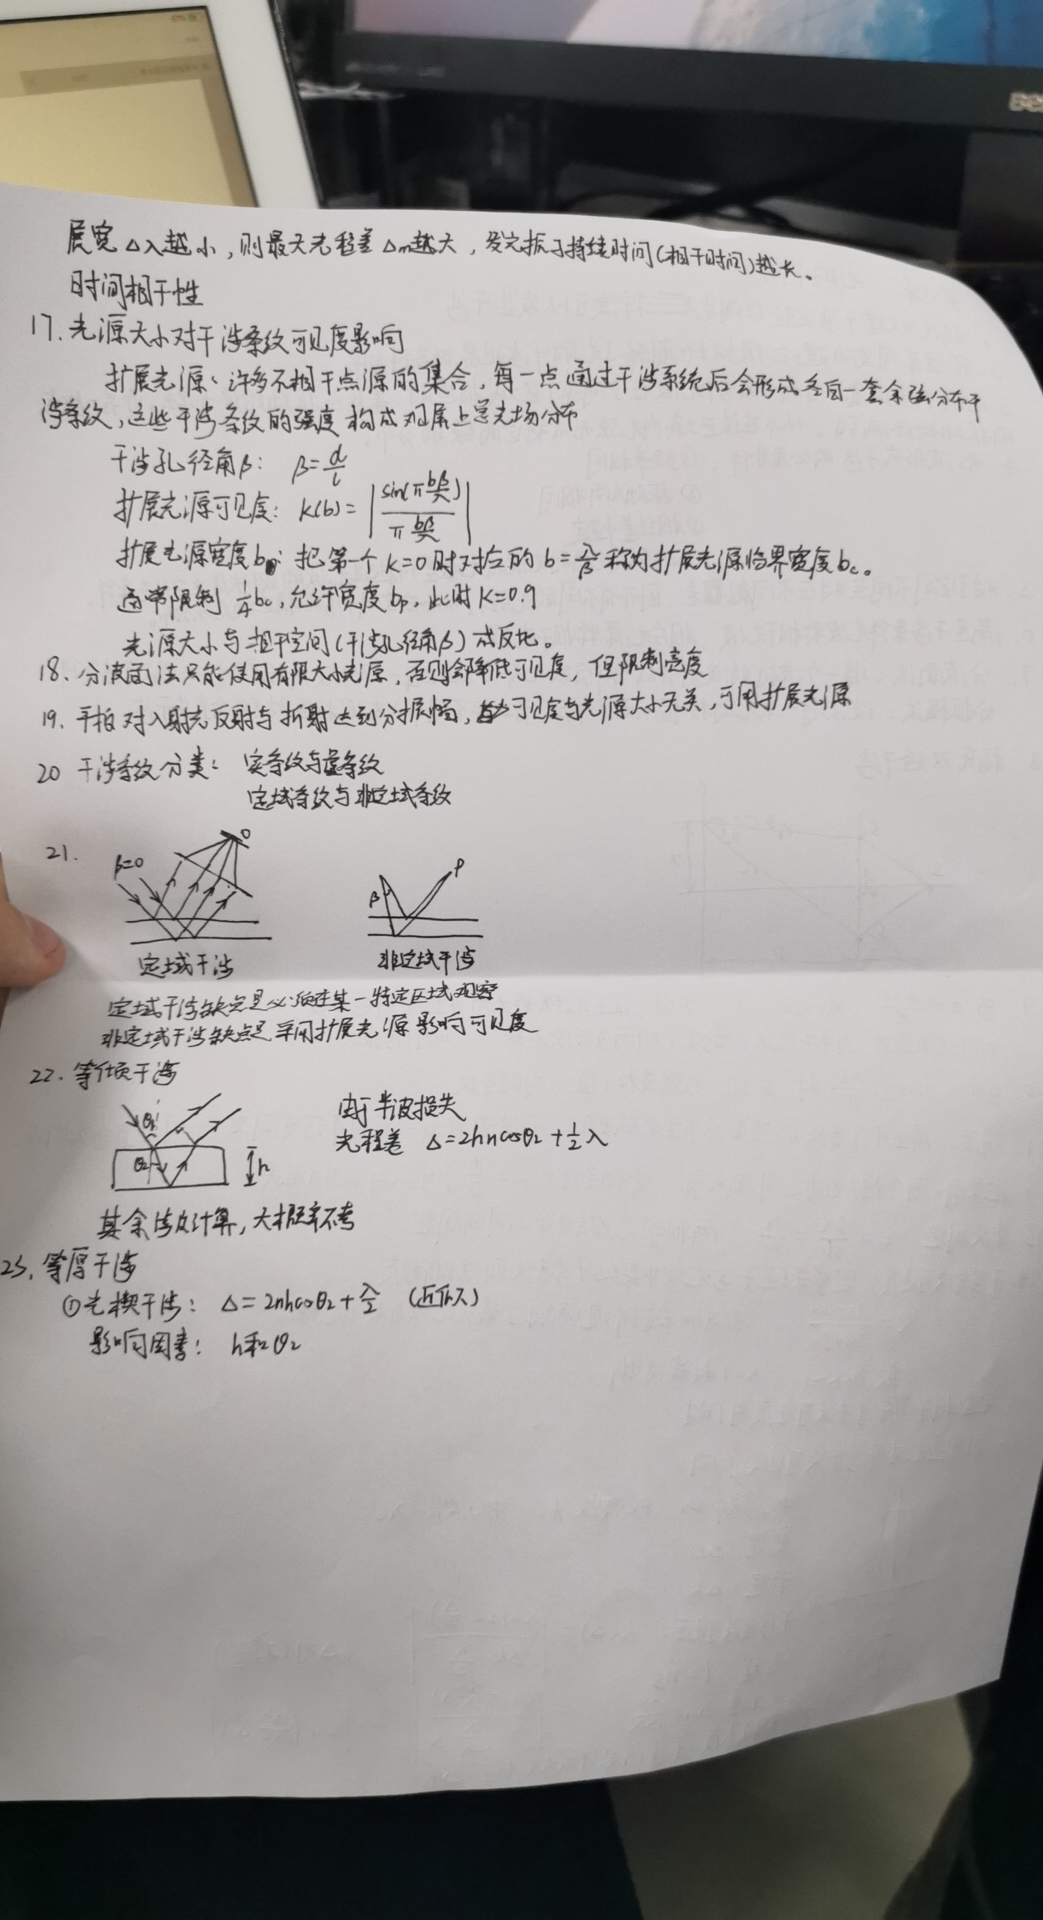 展宽Δλ越小，则最大光程差Δm越大，发光振子持续时间(相干时间)越长。
时间相干性
17. 光源大小对干涉条纹可见度影响
扩展光源：许多不相干点源的集合，每一点通过干涉系统后会形成各自一套余弦分布干
涉条纹，这些干涉条纹的强度构成观屏上总光场分布
干涉孔径角β： β=d/l
扩展光源可见度： K(b)=|sin(π bβ/λ) / π bβ/λ|
扩展光源宽度b：把第一个K=0时对应的b=λ/β称为扩展光源临界宽度bc。
通常限制 1/4 bc，允许宽度bp，此时K=0.9
光源大小与相干空间(干涉孔径角β)成反比。
18. 分波面法只能使用有限大小光源，否则会降低可见度，但限制亮度
19. 平板对入射光反射与折射达到分振幅，可见度与光源大小无关，可用扩展光源
20 干涉条纹分类： 实条纹与虚条纹
定域条纹与非定域条纹
21.
β=0 O β P
定域干涉 非定域干涉
定域干涉缺点是必须在某一特定区域观察
非定域干涉缺点是采用扩展光源影响可见度
22. 等倾干涉
由于半波损失
θ1 光程差 Δ=2hncosθ2+½λ
θ2 h
其余涉及计算，大概率不考
23. 等厚干涉
①光楔干涉： Δ=2nhcosθ2+λ/2 (近似)
影响因素： h和θ2
BenQ